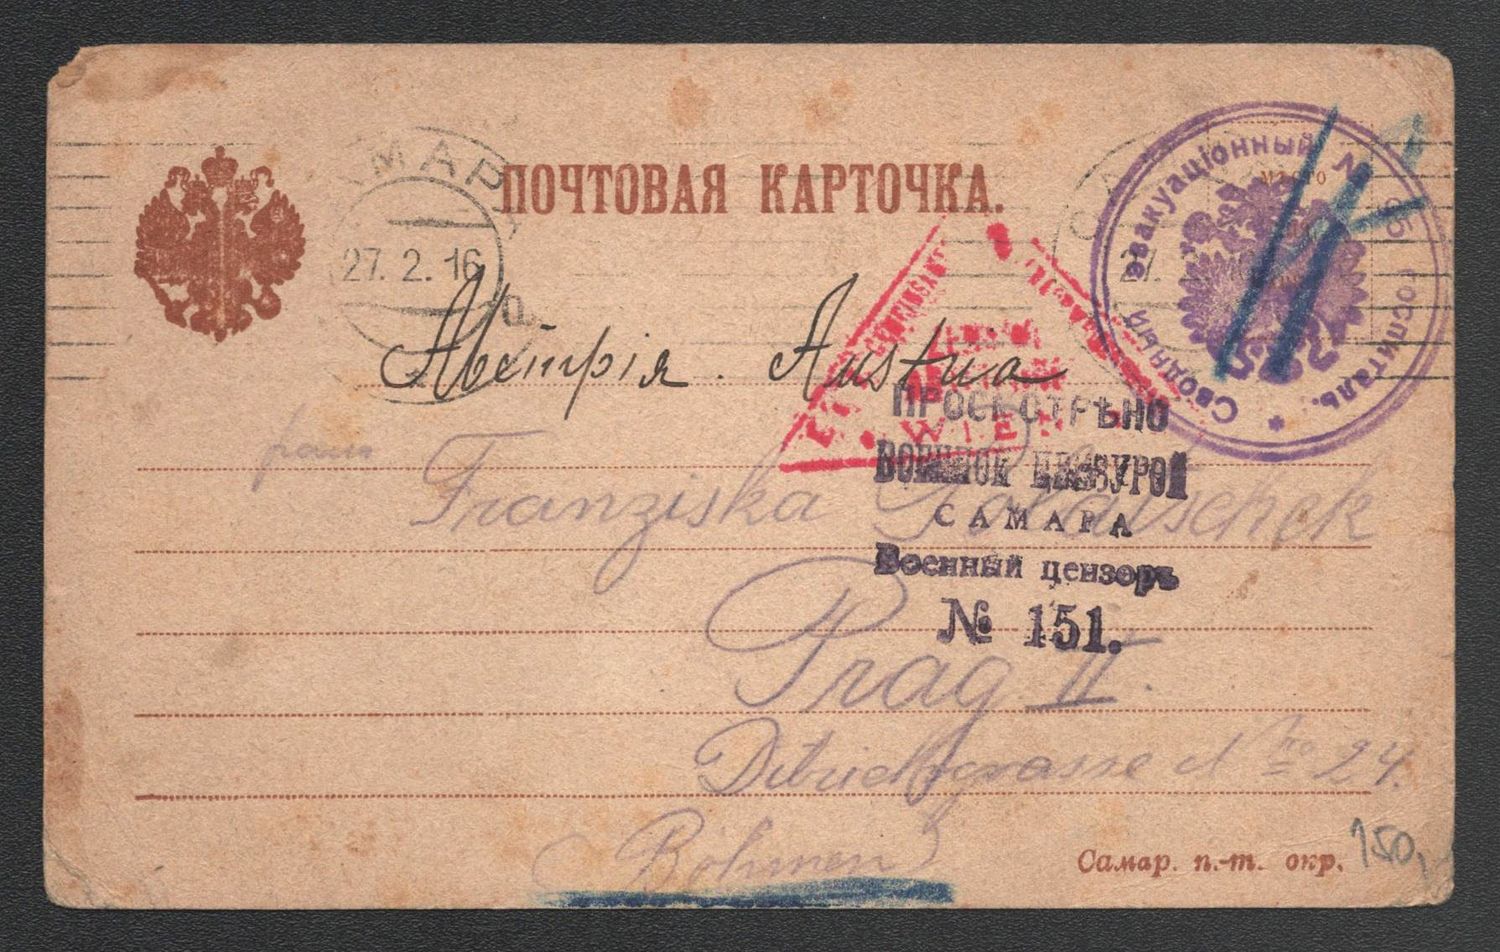 ПОЧТОВАЯ КАРТОЧКА.
САМАРА
27. 2. 16
Сводный эвакуаціонный № 66 госпиталь.
МѢСТО
Австрія. Austria
WIEN
ПРОСМОТРѢНО
ВОЕННОЙ ЦЕНЗУРОЙ
САМАРА
Военный цензоръ
№ 151.
Franziska
Prag II.
No 24.
Böhmen
Самар. п.-т. окр.
150,